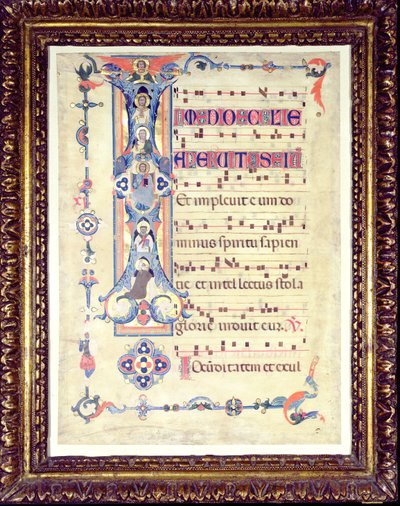 IN MEDIO ECCLE
APERUIT OS EIU
Et impleuit eum do
minus spiritu sapien
tie et intellectus stola
glorie induit eum. V
Iocunditatem et exul